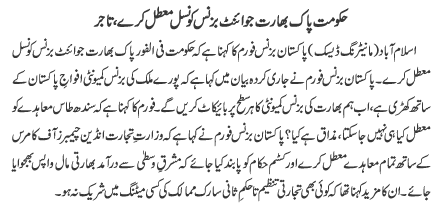 حکومت پاک بھارت جوائنٹ بزنس کونسل معطل کرے، تاجر
اسلام آباد (مانیٹرنگ ڈیسک) پاکستان بزنس فورم کا کہنا ہے کہ حکومت فی الفور پاک بھارت جوائنٹ بزنس کونسل
معطل کرے۔ پاکستان بزنس فورم نے جاری کردہ بیان میں کہا ہے کہ پورے ملک کی بزنس کمیونٹی افواج پاکستان کے
ساتھ کھڑی ہے، اب ہم بھارت کی بزنس کمیونٹی کا ہر سطح پر بائیکاٹ کریں گے۔ فورم کا کہنا ہے کہ سندھ طاس معاہدے کو
معطل کیا ہی نہیں جاسکتا، مذاق ہے کیا؟ پاکستان بزنس فورم نے کہا ہے کہ وزارت تجارت انڈین چیمبرز آف کامرس
کے ساتھ تمام معاہدے معطل کرے اور کسٹم حکام کو پابند کیا جائے کہ مشرق وسطیٰ سے درآمد بھارتی مال واپس بھجوایا
جائے۔ ان کا مزید کہنا تھا کہ کوئی بھی تجارتی تنظیم تا حکم ثانی سارک ممالک کی کسی میٹنگ میں شریک نہ ہو۔